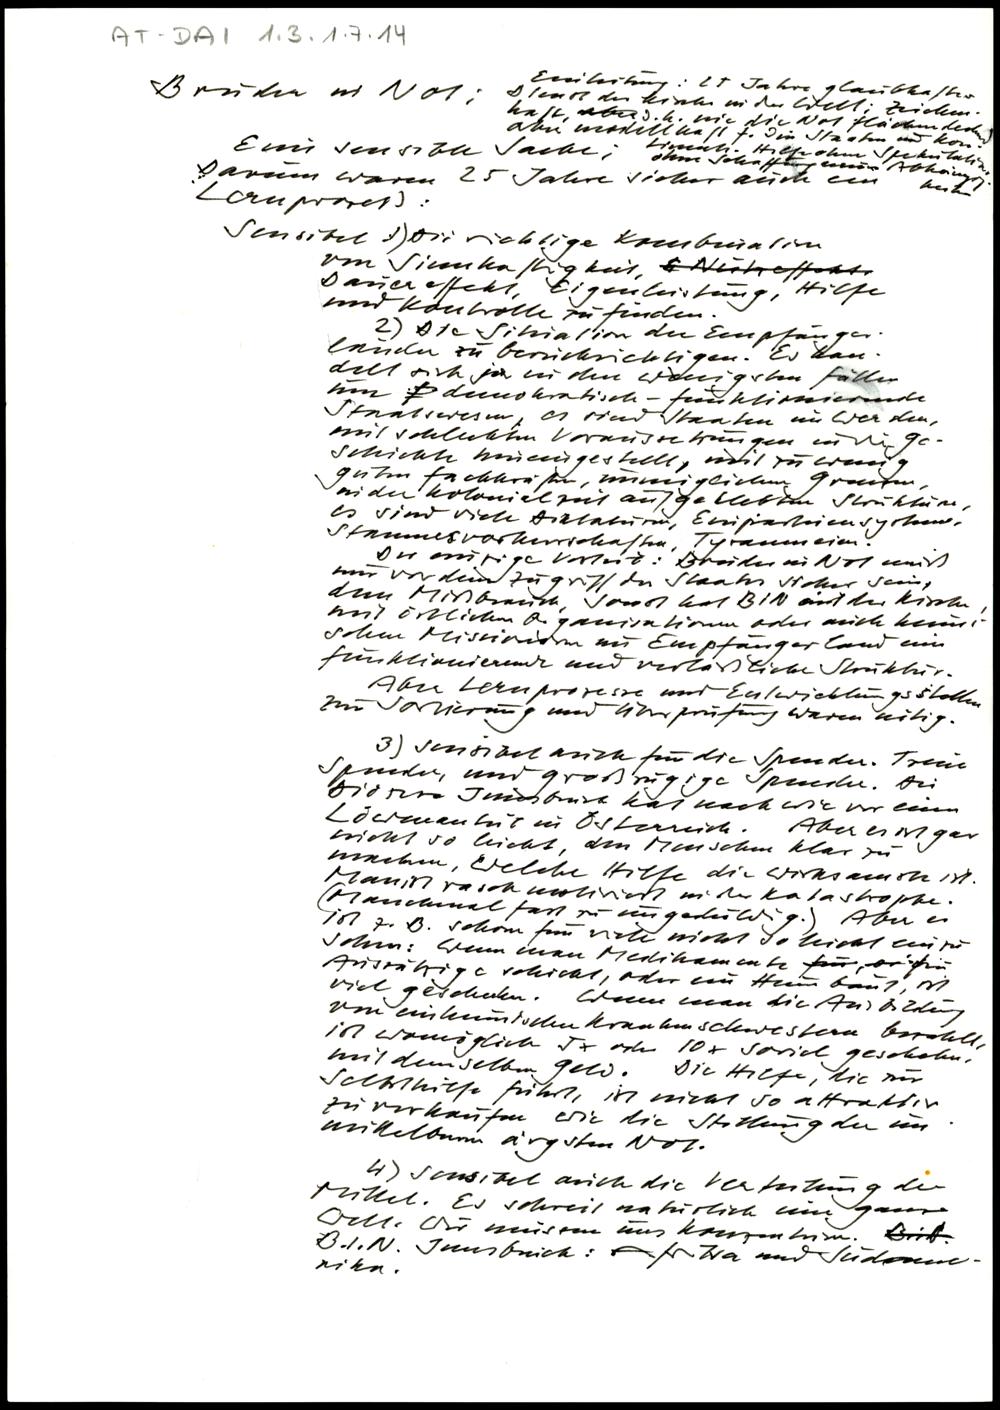 AT-DAI 1.3.1.7.14
Brüder in Not;
Einleitung: 25 Jahre glaubhafter
Dienst der Kirche in der Welt; zeichen-
haft, d. h. wie die Not flächendeckend
aber modellhaft f. die Staaten und Kon-
tinente. Hilfe ohne Spekulation,
ohne Schaffung einer Abhängig-
keit
Eine sensible Sache;
Darum waren 25 Jahre sicher auch ein
Lernprozeß:
Sensibel 1) Die richtige Kombination
von Sinnhaftigkeit,
Dauereffekt, Eigenleistung, Hilfe
und Kontrolle zu finden.
2) Die Situation der Empfänger-
länder zu berücksichtigen. Es han-
delt sich ja in den wenigsten Fällen
um demokratisch-funktionierende
Staatswesen, es sind Staaten im Werden,
mit schlechten Voraussetzungen in die Ge-
schichte hineingestellt, mit zu wenig
guten Fachkräften, unmöglichen Grenzen,
in der Kolonialzeit aufgeklebten Strukturen,
es sind viele Diktaturen, Einparteiensysteme,
Stammesvorherrschaften, Tyranneien.
Der einzige Vorteil: Brüder in Not muß
nur vor dem Zugriff des Staates sicher sein,
dem Mißbrauch, sonst hat BIN mit der Kirche,
mit örtlichen Organisationen oder auch heimi-
schen Missionaren im Empfängerland eine
funktionierende und verläßliche Struktur.
Aber Lernprozesse und Entwicklungsstellen
zur Sortierung und Überprüfung waren nötig.
3) Sensibel auch für die Spender. Treue
Spender, und großzügige Spender. Die
Diözese Innsbruck hat nach wie vor einen
Löwenanteil in Österreich. Aber es ist gar
nicht so leicht, den Menschen klar zu
machen, welche Hilfe die wirksamste ist.
Man ist rasch motiviert in der Katastrophe.
(Manchmal fast zu ungeduldig.) Aber es
ist z. B. schon für viele nicht so leicht einzu-
sehen: Wenn man Medikamente für
Aussätzige schickt, oder ein Heim baut, ist
viel geschehen. Wenn man die Ausbildung
von einheimischen Krankenschwestern bezahlt,
ist womöglich 5x oder 10x soviel geschehen,
mit demselben Geld. Die Hilfe, die zur
Selbsthilfe führt, ist nicht so attraktiv
zu verkaufen wie die Stillung der un-
mittelbaren ärgsten Not.
4) Sensibel auch die Verteilung der
Mittel. Es schreit natürlich eine ganze
Welt. Wir müssen uns konzentrieren.
B.I.N. Innsbruck: Afrika und Südame-
rika.